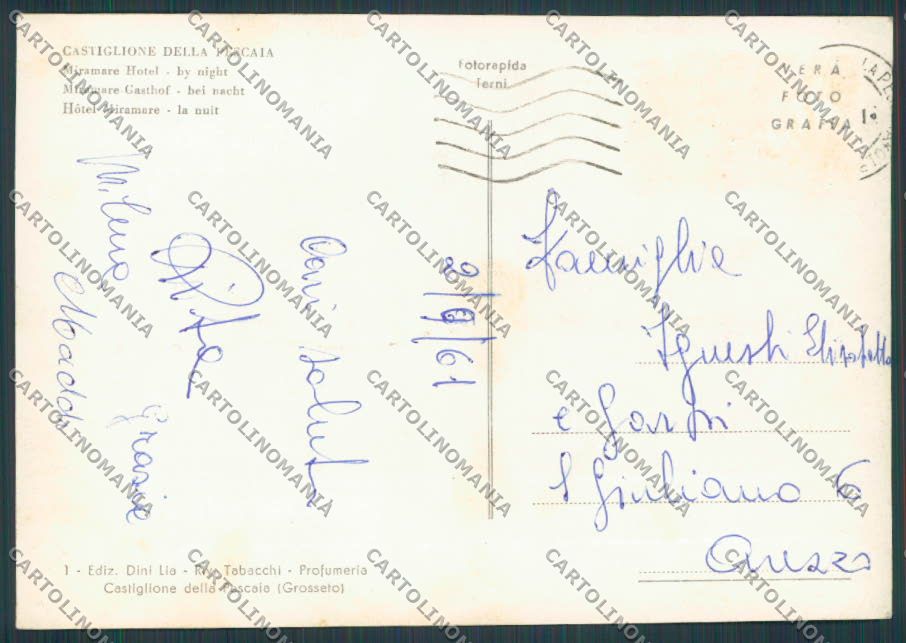 CASTIGLIONE DELLA PESCAIA
Miramare Hotel - by night
Miramare Gasthof - bei nacht
Hôtel Miramare - la nuit
fotorapida
Terni
VERA
FOTO
GRAFIA
Cari saluti
Rita
Milena
Grazia
2/9/61
Famiglia
Elisabetta
e
S Giuliano 6
Arezzo
1 - Ediz. Dini Lia - Riv. Tabacchi - Profumeria
Castiglione della Pescaia (Grosseto)
CARTOLINOMANIA